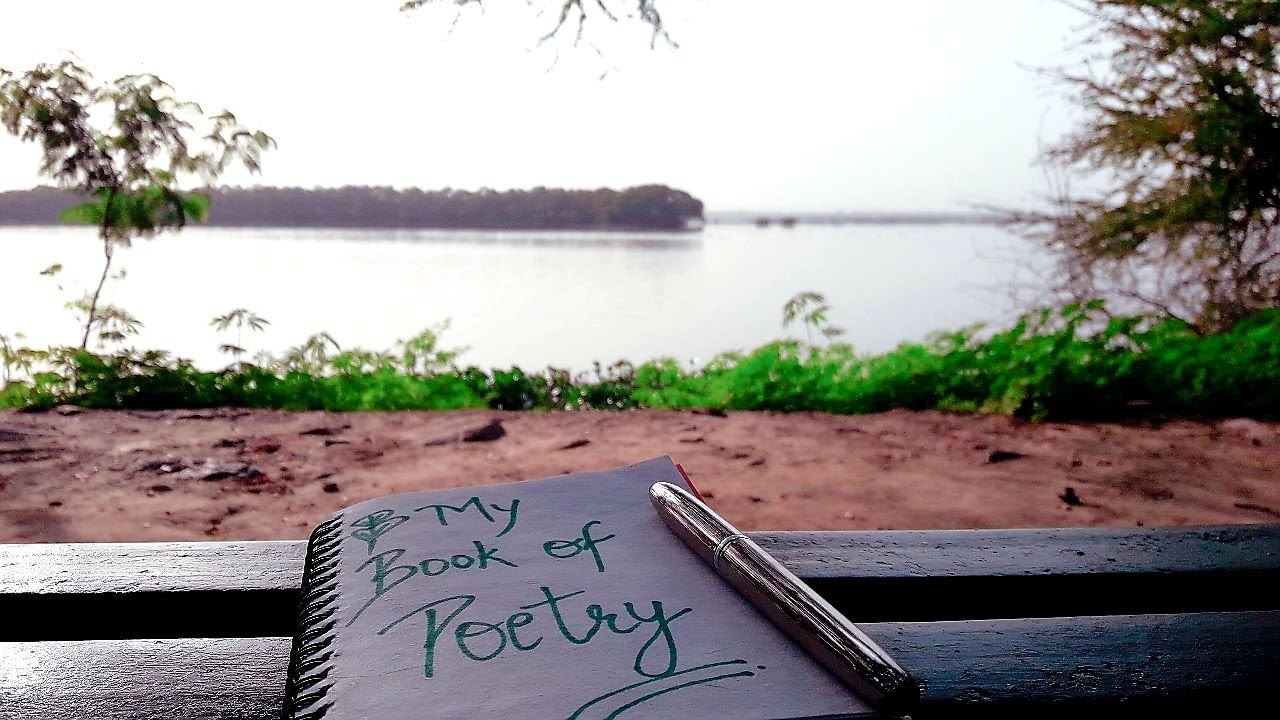 My
Book of
Poetry